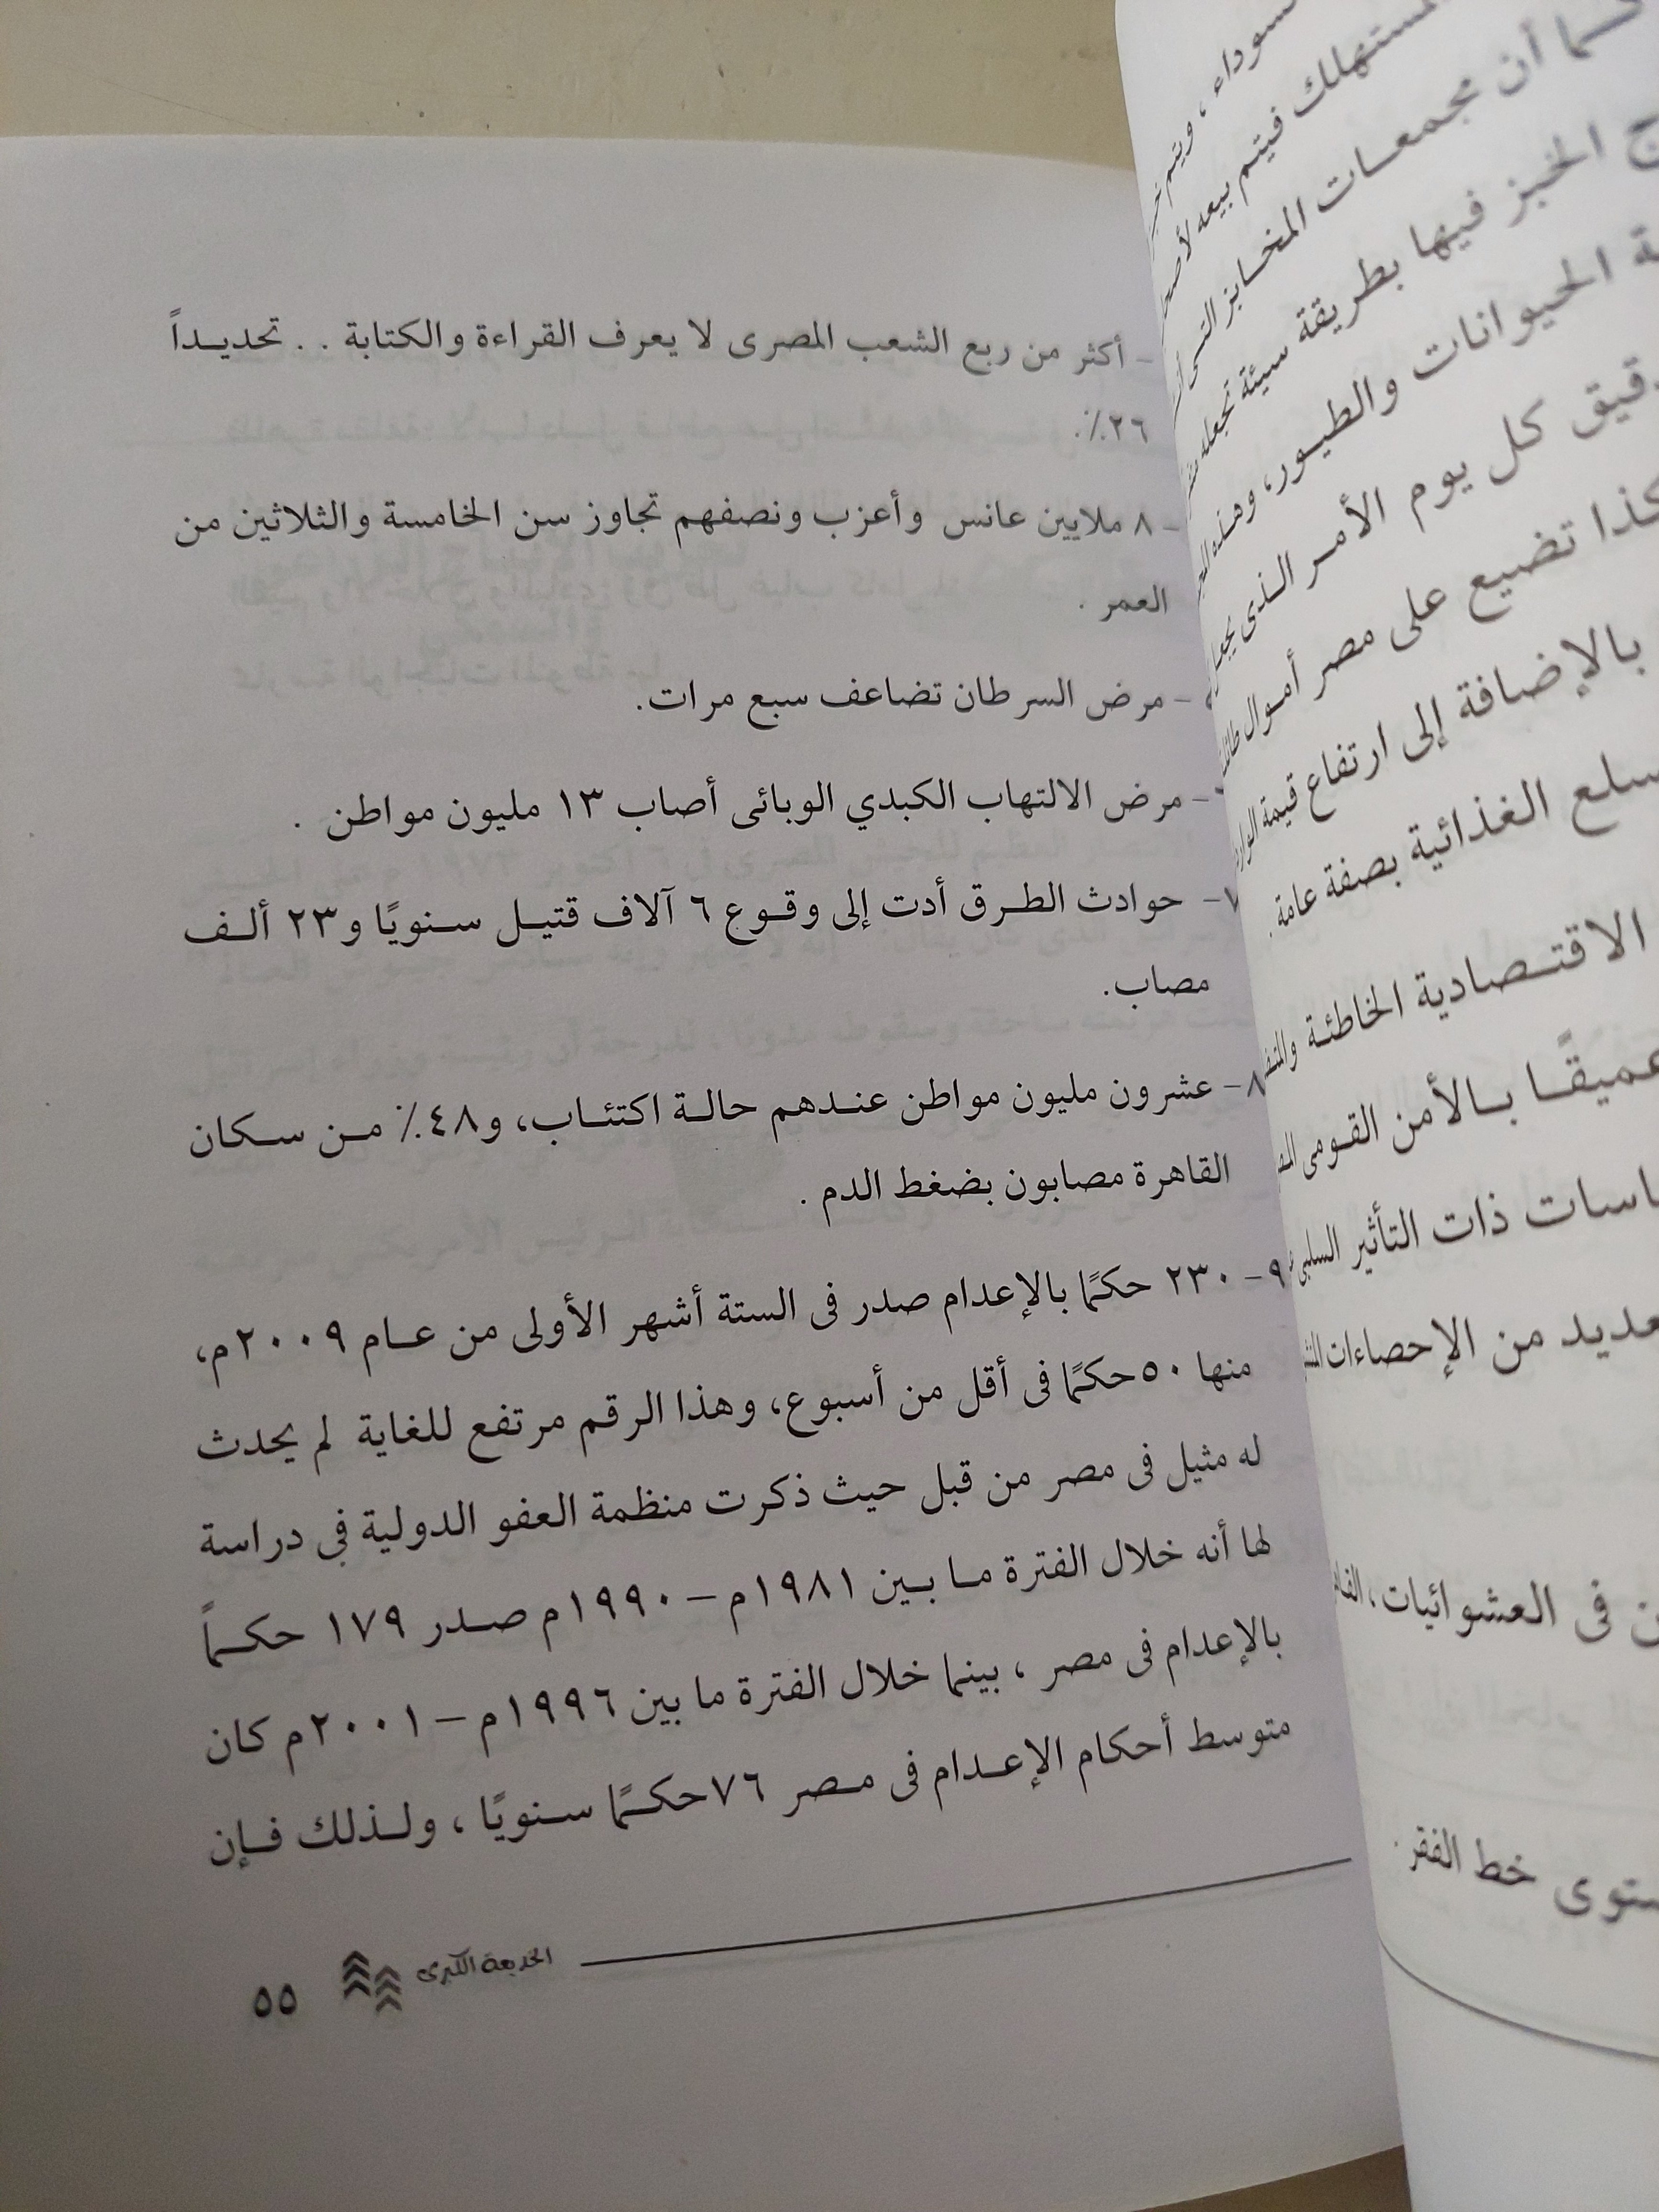 سوداء، ويتم
المستهلك فيتم بيعه
كما أن مجمعات المخابز التى
ج الخبز فيها بطريقة سيئة تجعله
الحيوانات والطيور، وهذه
دقيق كل يوم الأمر الذى يجعل
كذا تضيع على مصر أموال طائلة
بالإضافة إلى ارتفاع قيمة
سلع الغذائية بصفة عامة.
الاقتصادية الخاطئة
عميقًا بالأمن القومى
ذات التأثير السلبى
العديد من الإحصاءات
فى العشوائيات،
خط الفقر.
- أكثر من ربع الشعب المصرى لا يعرف القراءة والكتابة . . تحديداً
٢٦٪.
- ٨ ملايين عانس وأعزب ونصفهم تجاوز سن الخامسة والثلاثين من
العمر .
- مرض السرطان تضاعف سبع مرات.
- مرض الالتهاب الكبدي الوبائى أصاب ١٣ مليون مواطن .
٧- حوادث الطرق أدت إلى وقوع ٦ آلاف قتيل سنويًا و٢٣ ألف
مصاب.
٨- عشرون مليون مواطن عندهم حالة اكتئاب، و٤٨٪ من سكان
القاهرة مصابون بضغط الدم .
٩- ٢٣٠ حكمًا بالإعدام صدر فى الستة أشهر الأولى من عام ٢٠٠٩م،
منها ٥٠ حكمًا فى أقل من أسبوع، وهذا الرقم مرتفع للغاية لم يحدث
له مثيل فى مصر من قبل حيث ذكرت منظمة العفو الدولية فى دراسة
لها أنه خلال الفترة ما بين ١٩٨١م – ١٩٩٠م صدر ١٧٩ حكماً
بالإعدام فى مصر ، بينما خلال الفترة ما بين ١٩٩٦م – ٢٠٠١م كان
متوسط أحكام الإعدام فى مصر ٧٦ حكمًا سنويًا ، ولذلك فإن
الخديعة الكبرى
٥٥